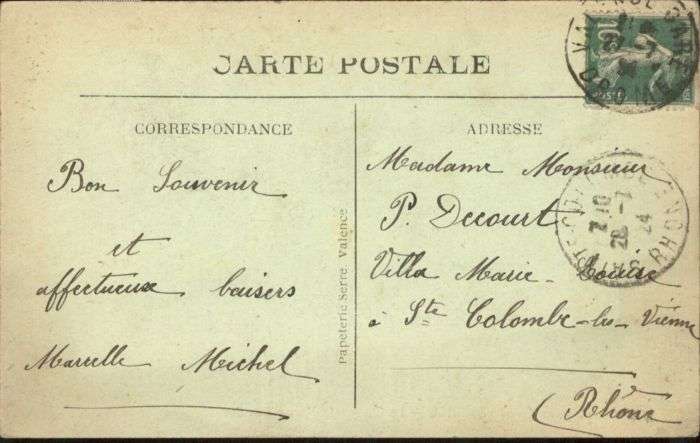 CARTE POSTALE
CORRESPONDANCE
Bon Souvenir
et
affectueux baisers
Marcelle Michel
Papeterie Serre, Valence
ADRESSE
Madame Monsieur
P. Decourt
Villa Marie-Louise
à Ste Colombe-les-Vienne
(Rhône
VALENCE GARE
DROME
10
POSTES
7 10
28 -1
24
RHONE